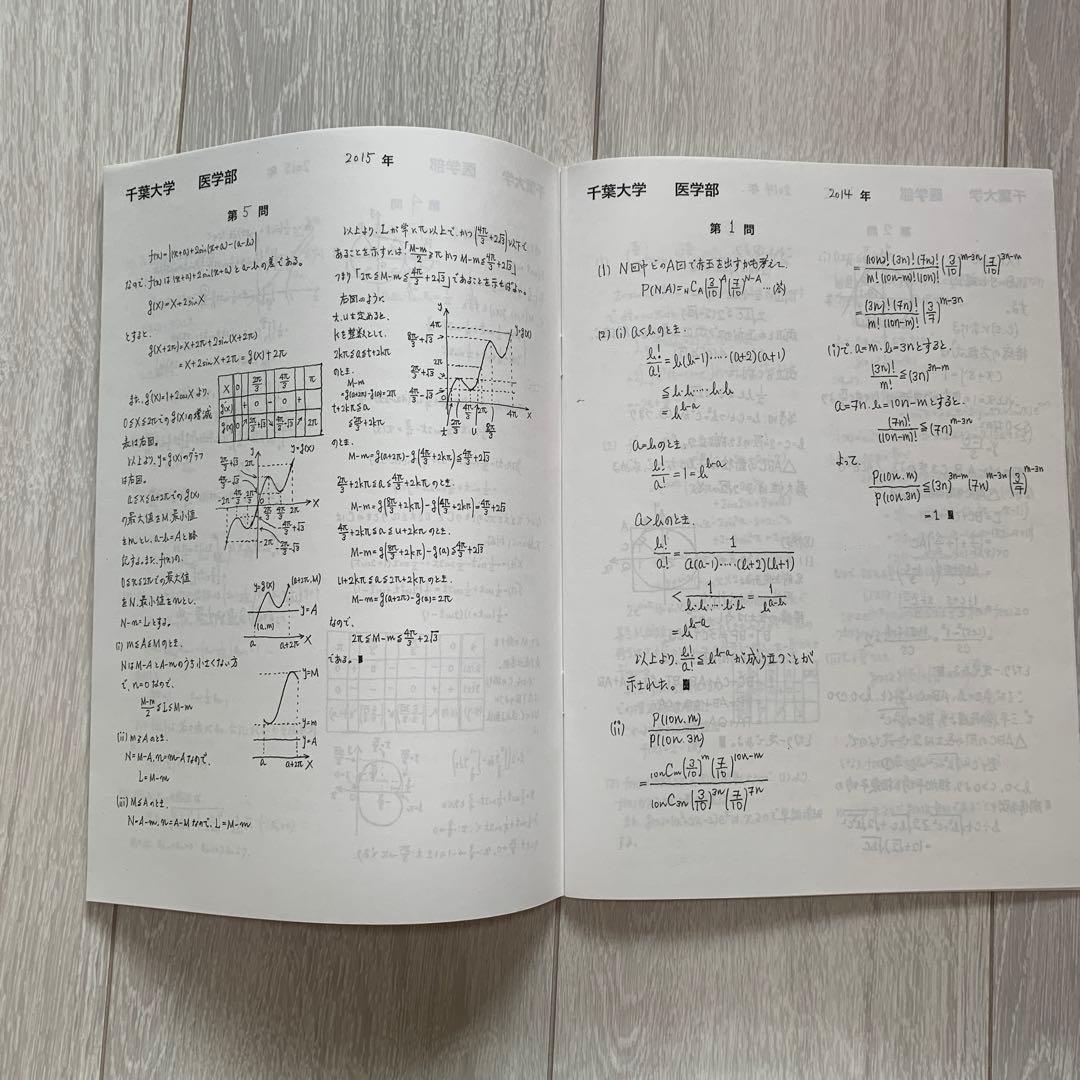 千葉大学 医学部
2015 年
第 5 問
f(x)=|(x+a)+2sin(x+a)-(a-b)|
なので f(x)は(x+a)+2sin(x+a)とa-bの差である。
g(x)=X+2sinX
とすると、
g(X+2π)=X+2π+2sin(X+2π)
=X+2sinX+2π=g(X)+2π
また、g'(X)=1+2cosXより、
0≦X≦2πでのg(X)の増減
表は右図。
以上より、y=g(X)のグラフ
は右図。
a≦X≦a+2πでのg(X)
の最大値をM、最小値
をmとし、a-b=Aと略
記する。また、f(x)の、
0≦x≦2πでの最大値
をN、最小値をnとし、
N-n=Lとする。
(i) m≦A≦Mのとき、
NはM-AとA-mのうち小さくない方
で、n=0なので、
\frac{M-m}{2}≦L≦M-m
(ii) m≧Aのとき、
N=M-A, n=m-Aなので、
L=M-m
(iii) M≦Aのとき、
N=A-m, n=A-Mなので、L=M-m
以上より、Lが常にπ以上で、かつ(\frac{4π}{3}+2√3)以下で
あることを示すには、「\frac{M-m}{2}≧πかつM-m≦\frac{4π}{3}+2√3」
つまり「2π≦M-m≦\frac{4π}{3}+2√3」であることを示せばよい。
右図のように
t,uを定めると、
kを整数として、
2kπ≦a≦t+2kπ
のとき、
M-m
=g(a+2π)-g(a)=2π
t+2kπ≦a
≦\frac{2π}{3}+2kπ
のとき、
M-m=g(a+2π)-g(\frac{4π}{3}+2kπ)≦\frac{4π}{3}+2√3
\frac{2π}{3}+2kπ≦a≦\frac{4π}{3}+2kπのとき、
M-m=g(\frac{8π}{3}+2kπ)-g(\frac{4π}{3}+2kπ)=\frac{4π}{3}+2√3
\frac{4π}{3}+2kπ≦a≦u+2kπのとき、
M-m=g(\frac{8π}{3}+2kπ)-g(a)≦\frac{4π}{3}+2√3
u+2kπ≦a≦2π+2kπのとき、
M-m=g(a+2π)-g(a)=2π
なので、
2π≦M-m≦\frac{4π}{3}+2√3
である。
千葉大学 医学部
2014 年
第 1 問
(1) N回中どのA回で赤玉を出すかも考えて、
P(N,A)=_{N}C_{A}(\frac{3}{10})^{A}(\frac{7}{10})^{N-A} …(答)
(2) (i) a<bのとき、
\frac{b!}{a!}=b(b-1)・…・(a+2)(a+1)
≦b・b・…・b・b
=b^{b-a}
a=bのとき、
\frac{b!}{a!}=1=b^{b-a}
a>bのとき、
\frac{b!}{a!}=\frac{1}{a(a-1)・…・(b+2)(b+1)}
<\frac{1}{b・b・…・b・b}=\frac{1}{b^{a-b}}
=b^{b-a}
以上より、\frac{b!}{a!}≦b^{b-a}が成り立つことが
示された。
(ii) \frac{P(10n,m)}{P(10n,3n)}
=\frac{_{10n}C_{m}(\frac{3}{10})^{m}(\frac{7}{10})^{10n-m}}{_{10n}C_{3n}(\frac{3}{10})^{3n}(\frac{7}{10})^{7n}}
=\frac{(10n)!(3n)!(7n)!}{m!(10n-m)!(10n)!}(\frac{3}{10})^{m-3n}(\frac{7}{10})^{3n-m}
=\frac{(3n)!(7n)!}{m!(10n-m)!}(\frac{3}{7})^{m-3n}
(i)で、a=m、b=3nとすると、
\frac{(3n)!}{m!}≦(3n)^{3n-m}
a=10n-m、b=7nとすると、
\frac{(7n)!}{(10n-m)!}≦(7n)^{m-3n}
よって、
\frac{P(10n,m)}{P(10n,3n)}≦(3n)^{3n-m}(7n)^{m-3n}(\frac{3}{7})^{m-3n}
=1